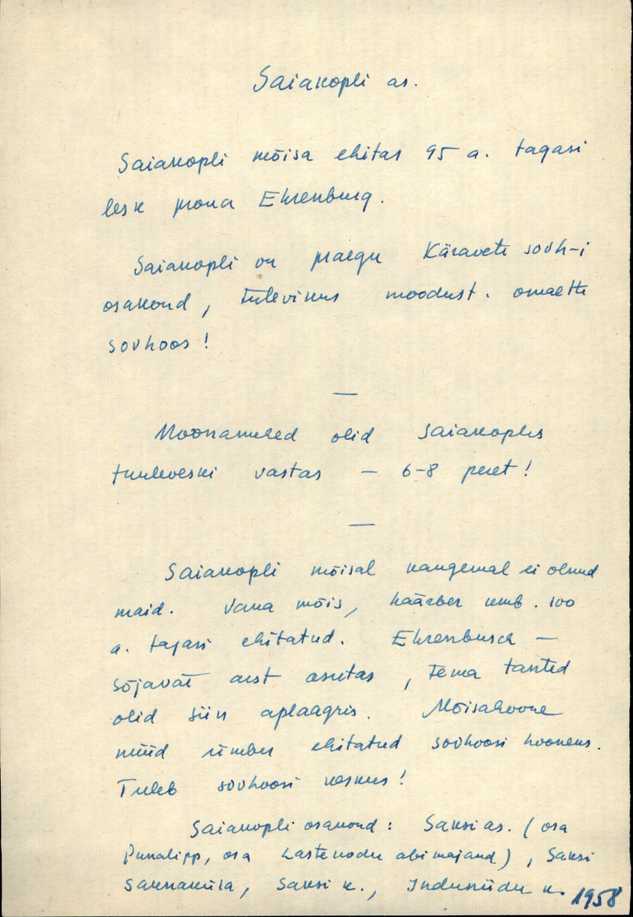 Saiakopli as.
Saiakopli mõisa ehitas 95 a. tagasi
lesk proua Ehrenburg.
Saiakopli on praegu Käravete sovh-i
osakond, tulevikus moodust. omaette
sovhoos!
—
Moonamehed olid Saiakoplis
tuuleveski vastas — 6-8 peret!
—
Saiakopli mõisal kaugemal ei olnud
maid. Vana mõis, häärber umb. 100
a. tagasi ehitatud. Ehrenbusch —
sõjaväe arst asutas, tema tantid
olid siin aplaagris. Mõisahoone
nüüd ümber ehitatud sovhoosi hooneks.
Tuleb sovhoosi keskus!
Saiakopli osakond: Saksi as. (osa
Punalipp, osa Lastekodu abimajand), Saksi
Saunaküla, Saksi k., Induniidu k.
1958